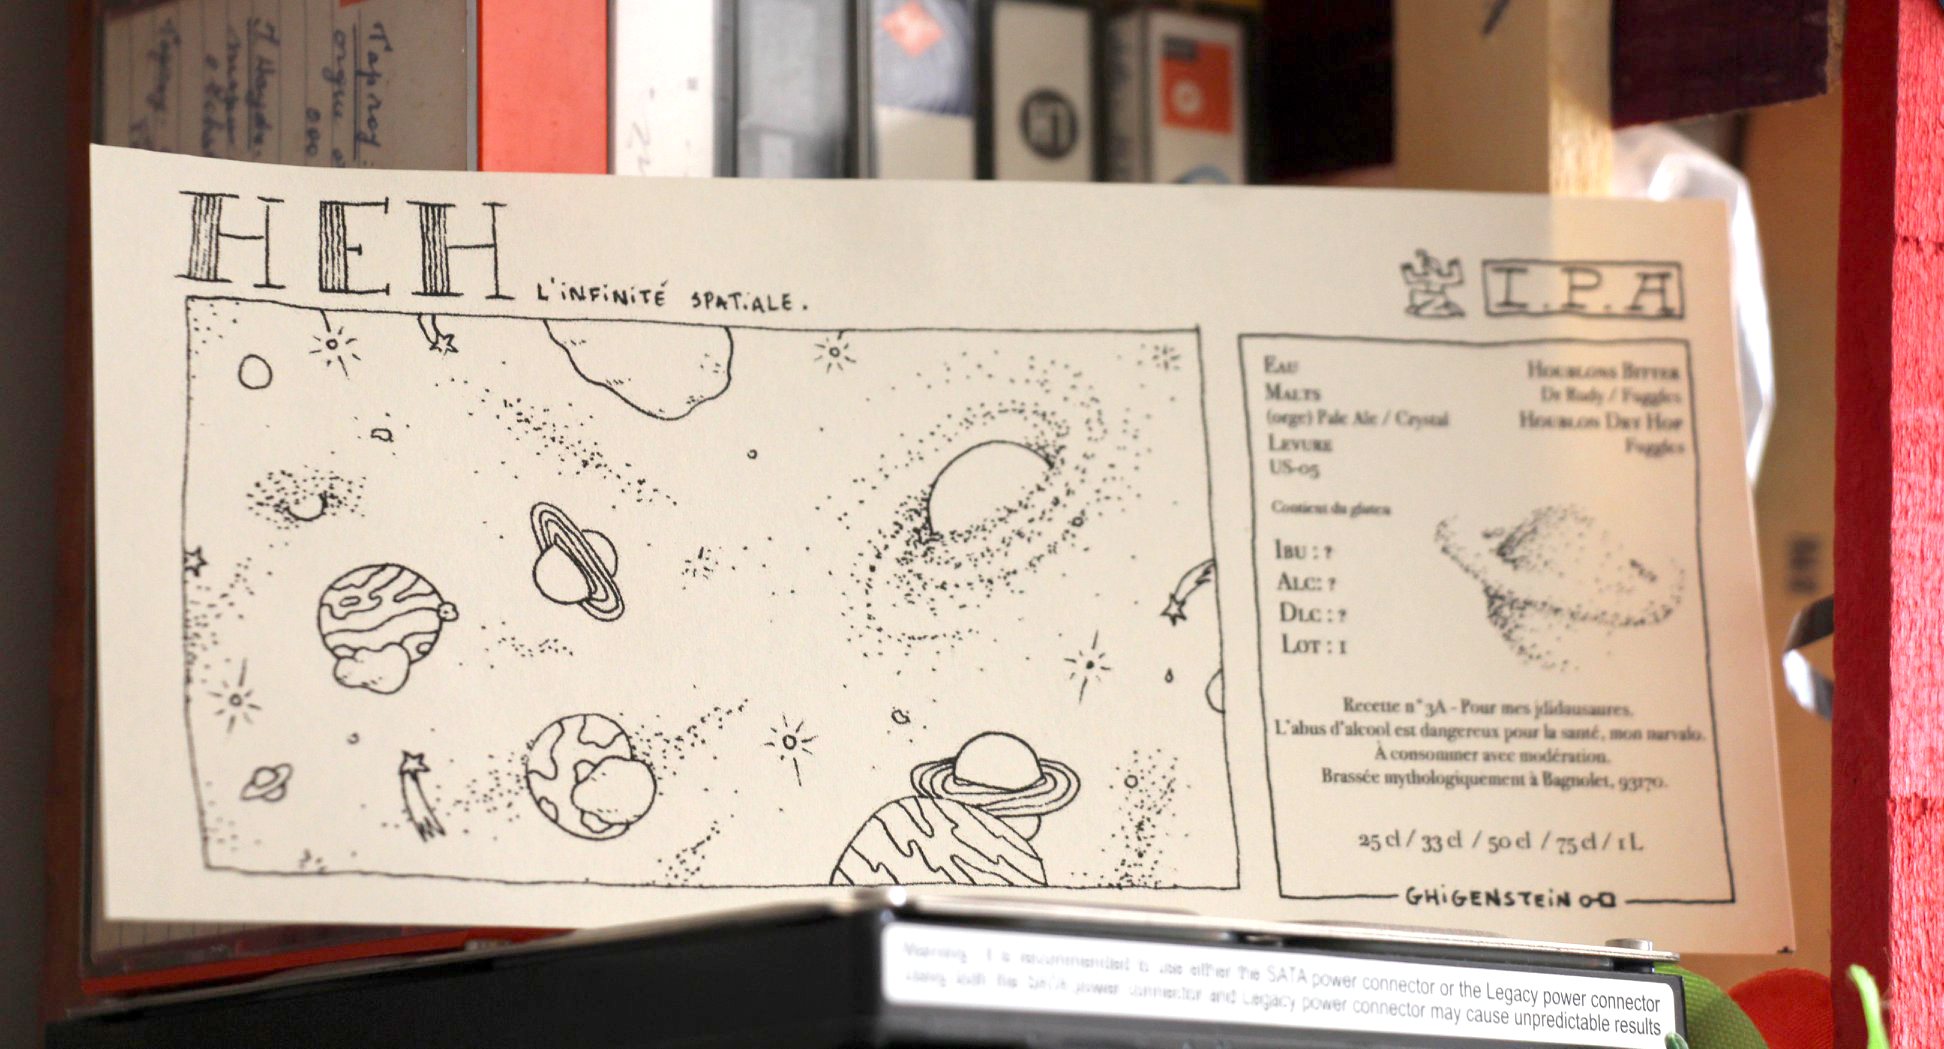 HEH
L'INFINITÉ SPATIALE.
I.P.A
EAU
MALTS
(orge) Pale Ale / Crystal
LEVURE
US-05
Contient du gluten
HOUBLONS BITTER
Dr Rudy / Fuggles
HOUBLON DRY HOP
Fuggles
IBU : ?
ALC: ?
DLC : ?
LOT : 1
Recette n° 3A - Pour mes jdidausaures.
L'abus d'alcool est dangereux pour la santé, mon narvalo.
À consommer avec modération.
Brassée mythologiquement à Bagnolet, 93170.
25 cl / 33 cl / 50 cl / 75 cl / 1 L
GHIGENSTEIN
Warning : It is recommended to use either the SATA power connector or the Legacy power connector
Using both the SATA power connector and Legacy power connector may cause unpredictable results